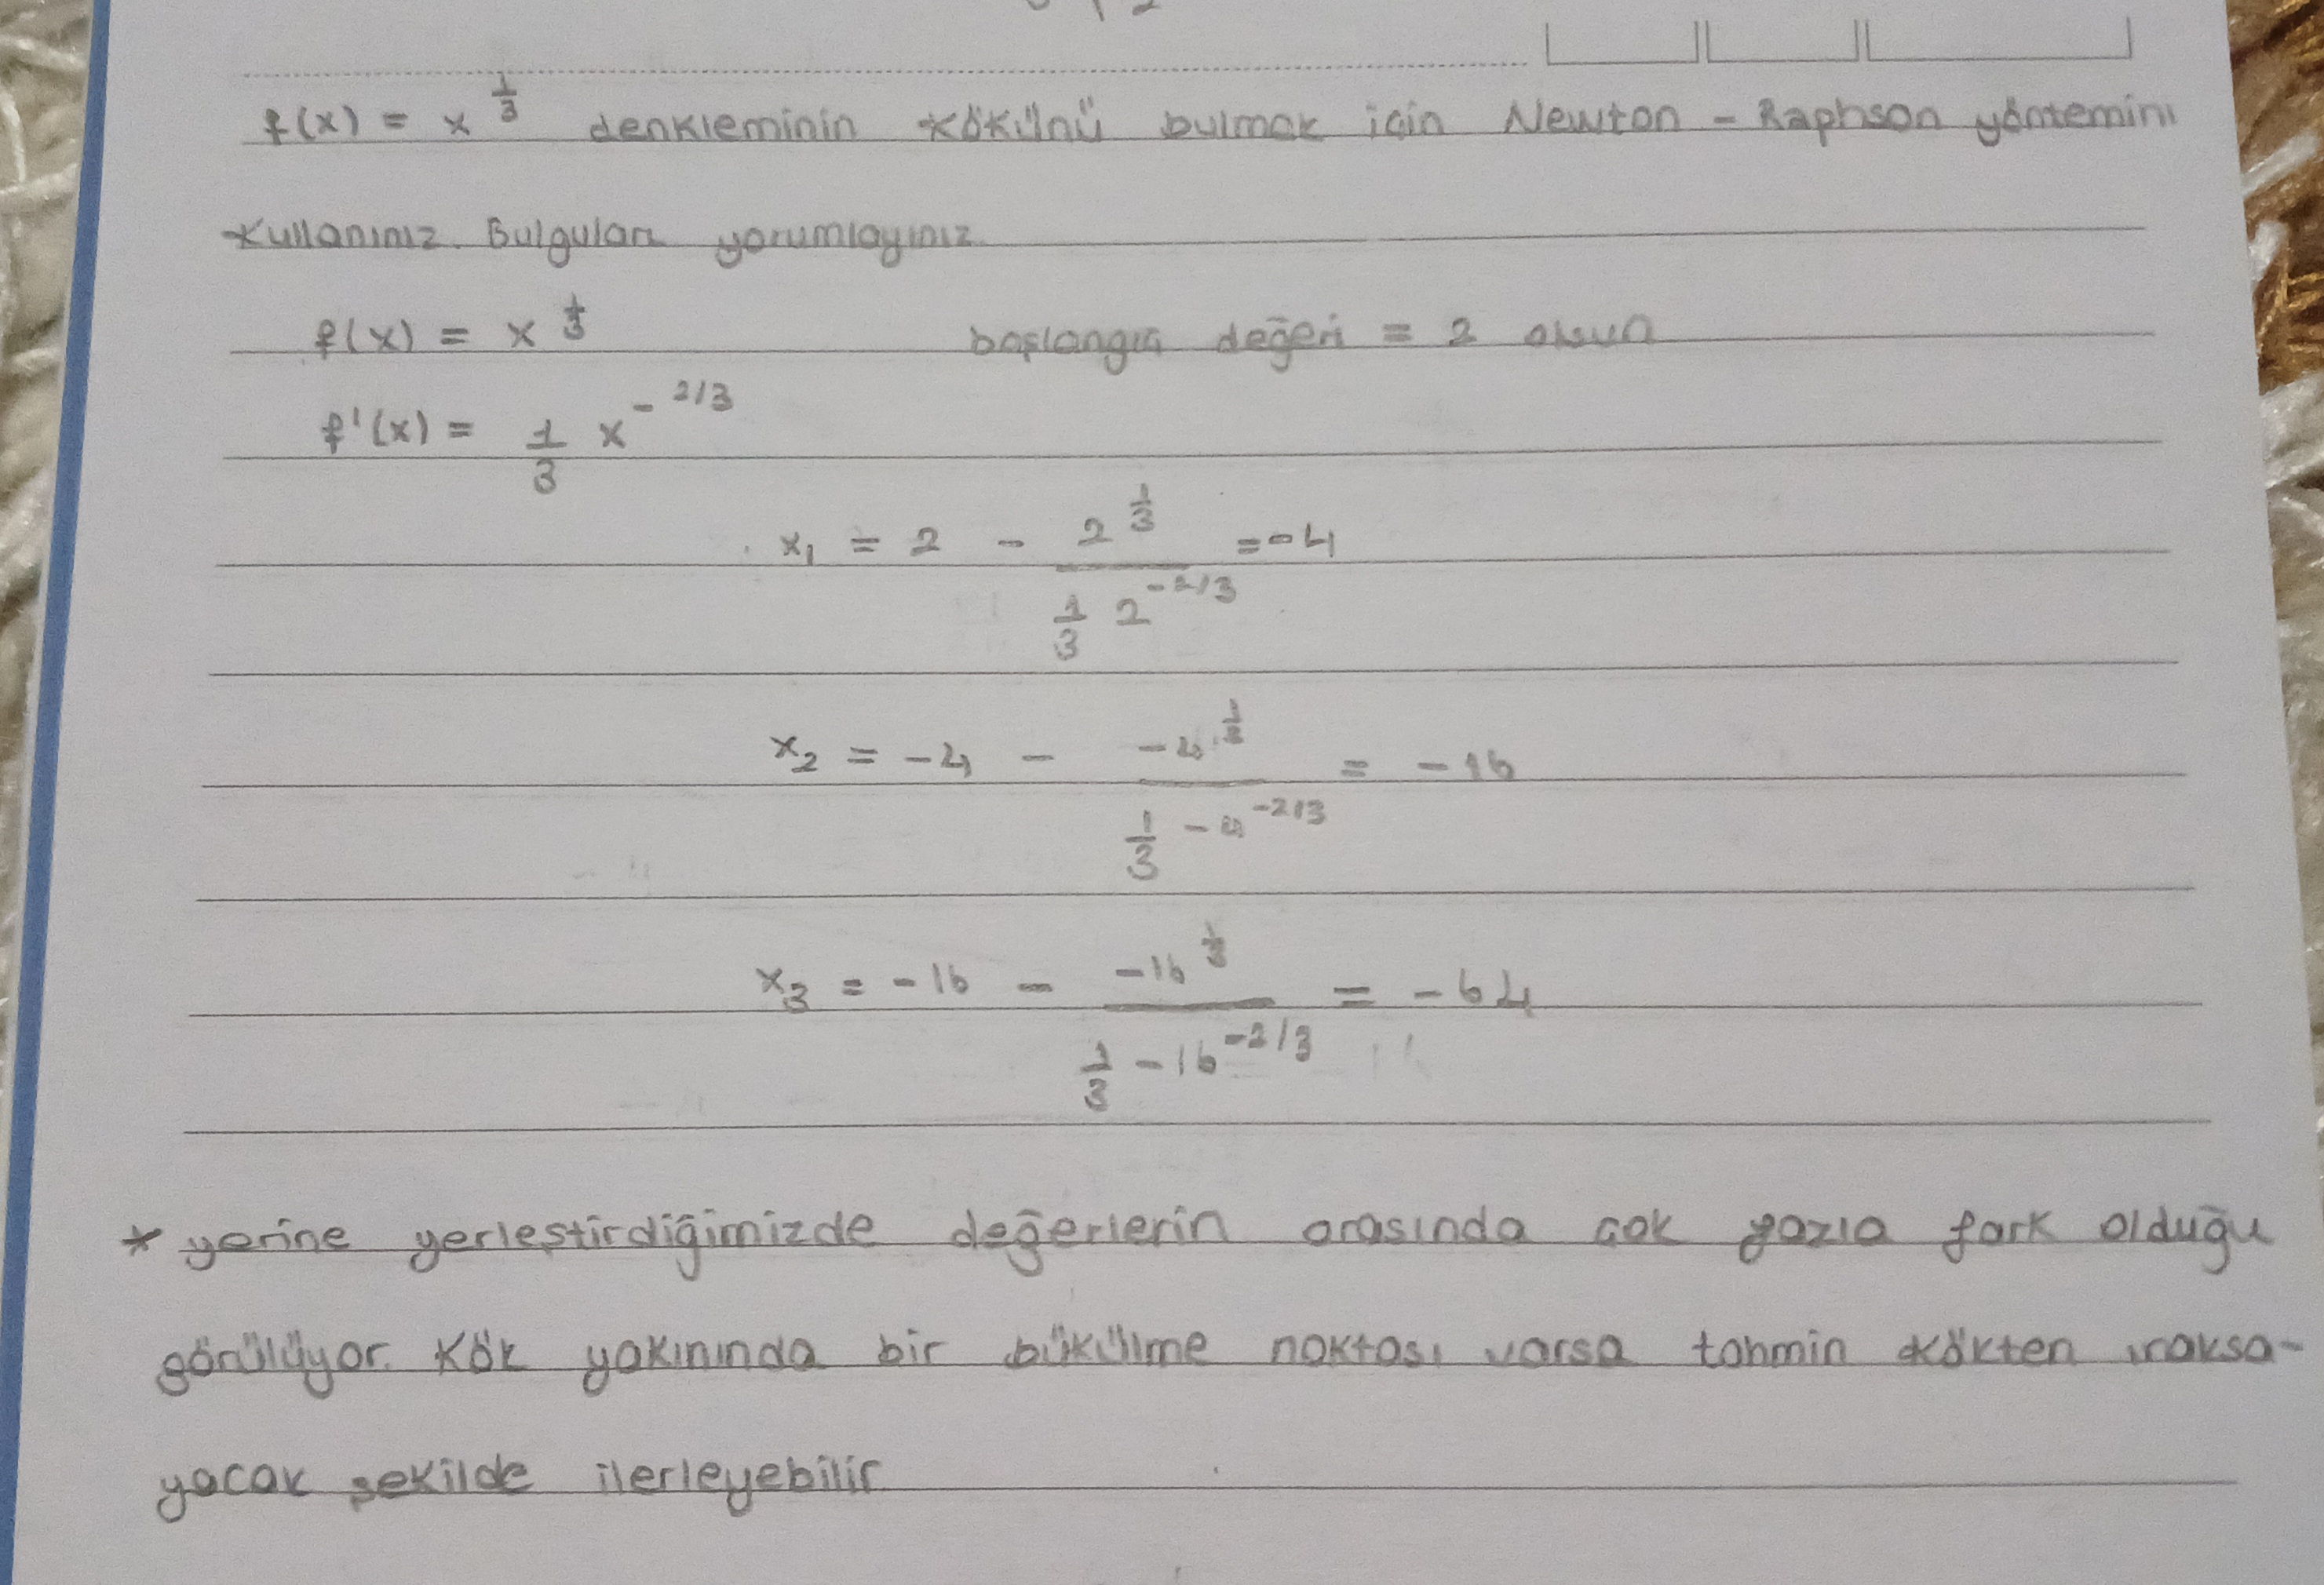 f(x) = x^{1/3} denkleminin kökünü bulmak için Newton - Raphson yöntemini
kullanınız. Bulguları yorumlayınız.
f(x) = x^{1/3} başlangıç değeri = 2 olsun
f'(x) = \frac{1}{3} x^{-2/3}
x_1 = 2 - \frac{2^{1/3}}{\frac{1}{3} 2^{-2/3}} = -4
x_2 = -4 - \frac{-4^{1/3}}{\frac{1}{3} -4^{-2/3}} = -16
x_3 = -16 - \frac{-16^{1/3}}{\frac{1}{3} -16^{-2/3}} = -64
* yerine yerleştirdiğimizde değerlerin arasında çok fazla fark olduğu
görülüyor. Kök yakınında bir bükülme noktası varsa tahmin kökten ıraksa-
yacak şekilde ilerleyebilir